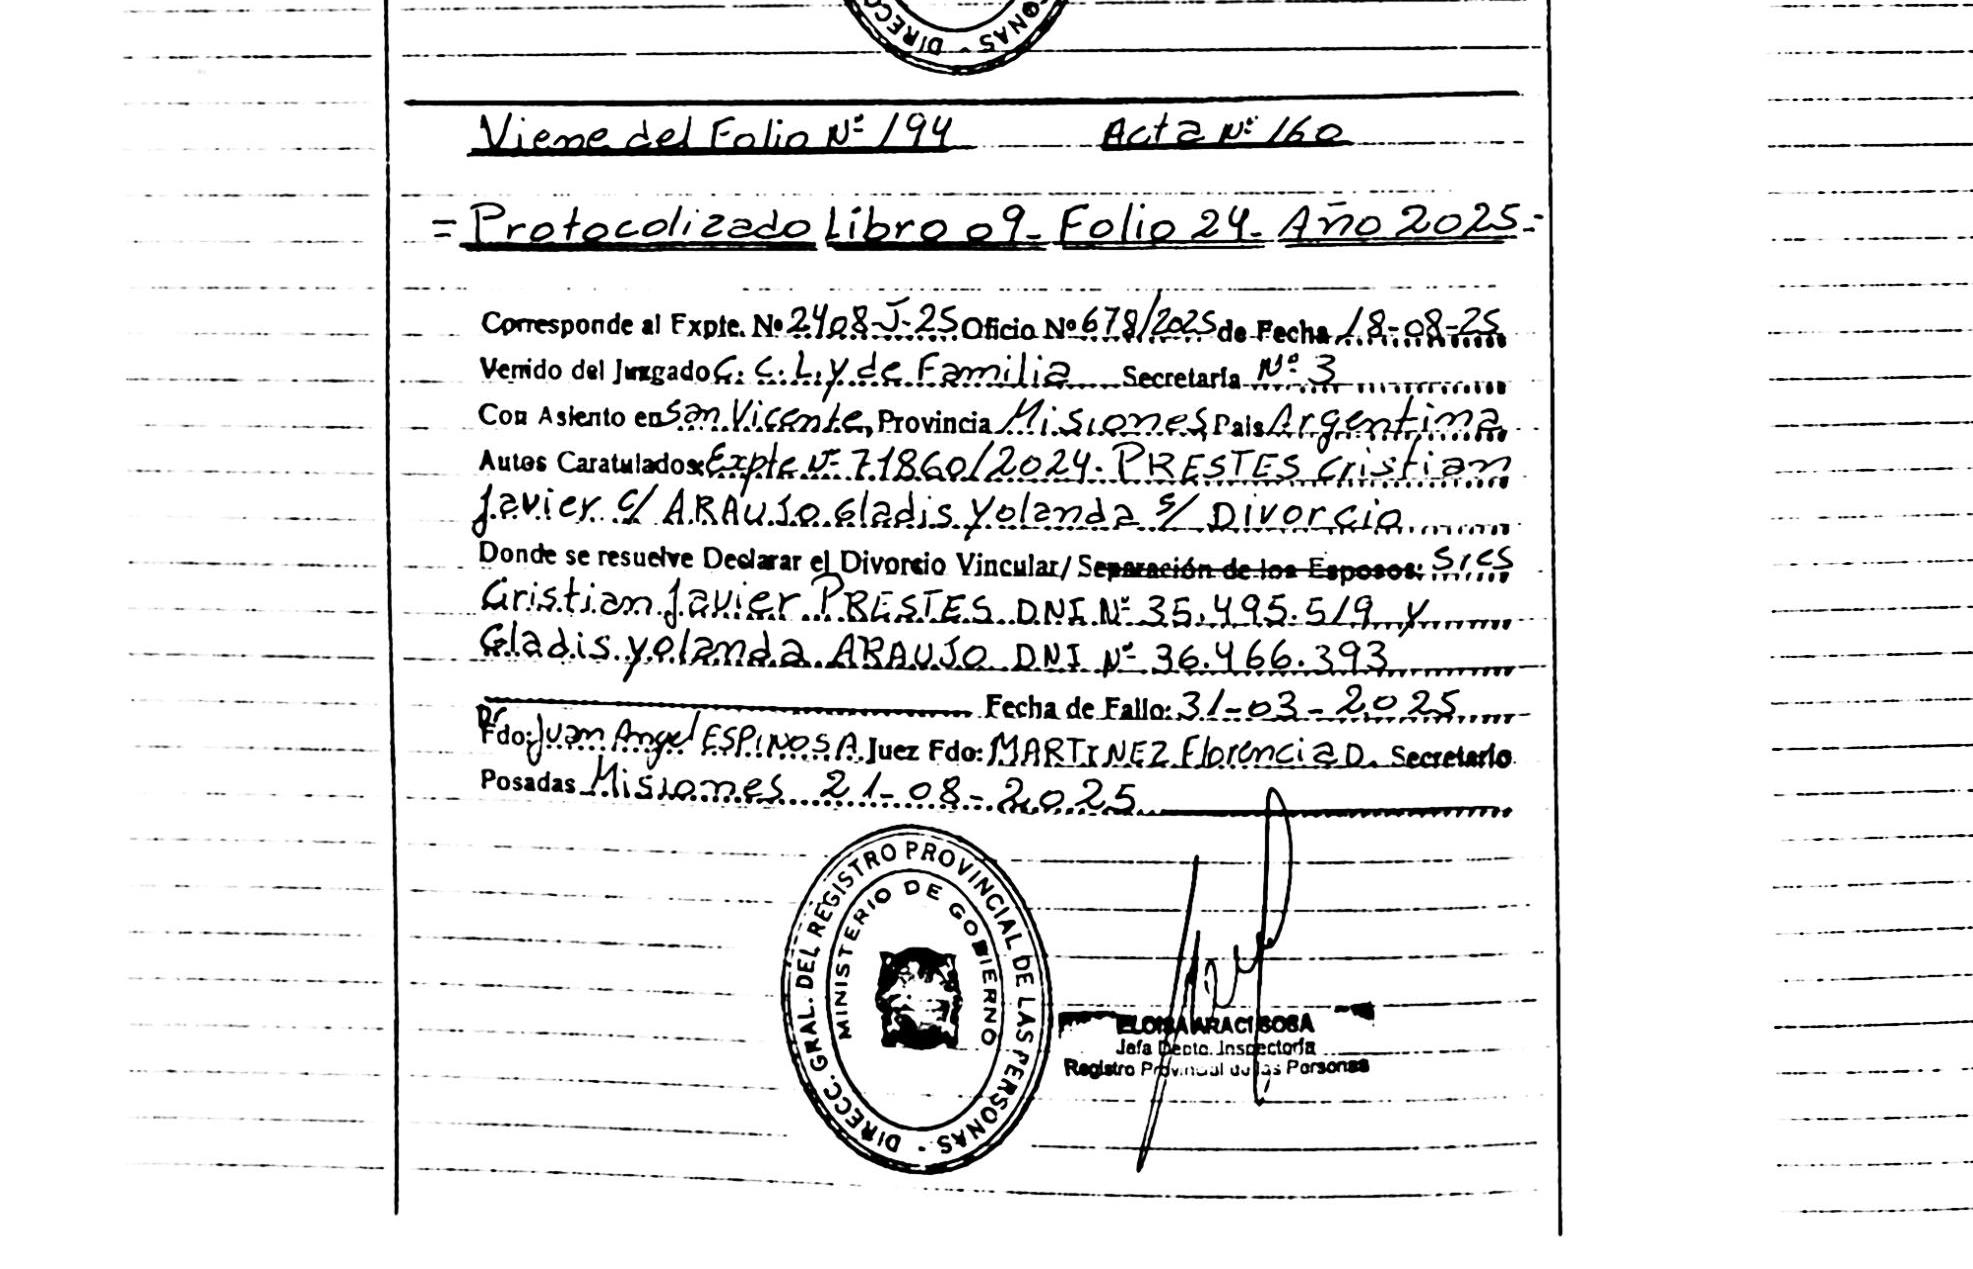 DIRECC ONAS -
Viene del Folio Nº 194 Acta Nº 160
= Protocolizado Libro 09- Folio 24- Año 2025=
Corresponde al Expte. Nº 2408-J-25 Oficio Nº 678/2025 de Fecha 18-08-25
Venido del Juzgado C. C. L. y de Familia Secretaría Nº 3
Con Asiento en San Vicente, Provincia Misiones, País Argentina
Autos Caratulados: Expte Nº 71860/2024. PRESTES Cristian
Javier c/ ARAUJO Gladis Yolanda s/ Divorcio
Donde se resuelve Declarar el Divorcio Vincular/ Separación de los Esposos: Sres
Cristian Javier PRESTES DNI Nº 35.495.519 y
Gladis Yolanda ARAUJO DNI Nº 36.466.393
Fecha de Fallo: 31-03-2025
Dr
Fdo: Juan Angel ESPINOSA Juez Fdo: MARTINEZ Florencia D. Secretario
Posadas Misiones 21-08-2025
DIRECC. GRAL. DEL REGISTRO PROVINCIAL DE LAS PERSONAS -
MINISTERIO DE GOBIERNO
ELOISA ARACI SOSA
Jefa Depto. Inspectoría
Registro Provincial de las Personas